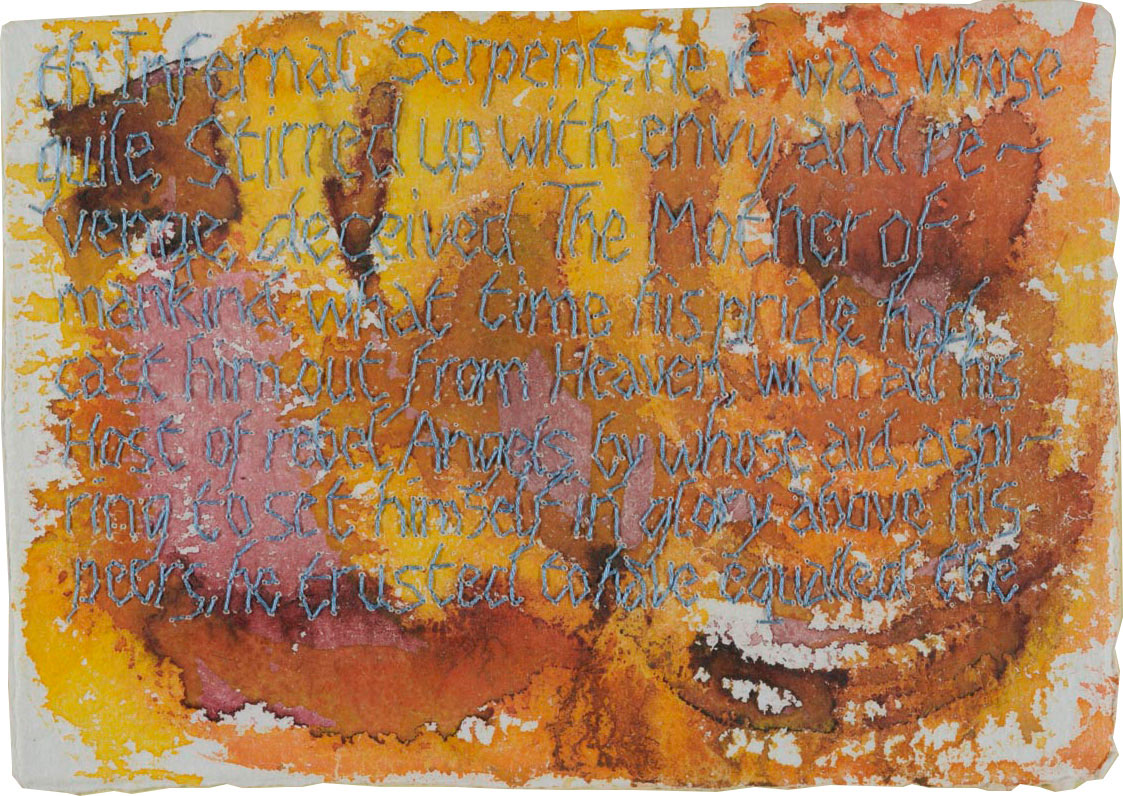 th'Infernal Serpent; he it was whose
guile Stirred up with envy and re~
venge, deceived The Mother of
mankind, what time his pride had
cast him out from Heaven, with all his
Host of rebel Angels by whose aid, aspi~
ring to set himself in glory above his
peers, he trusted to have equalled the